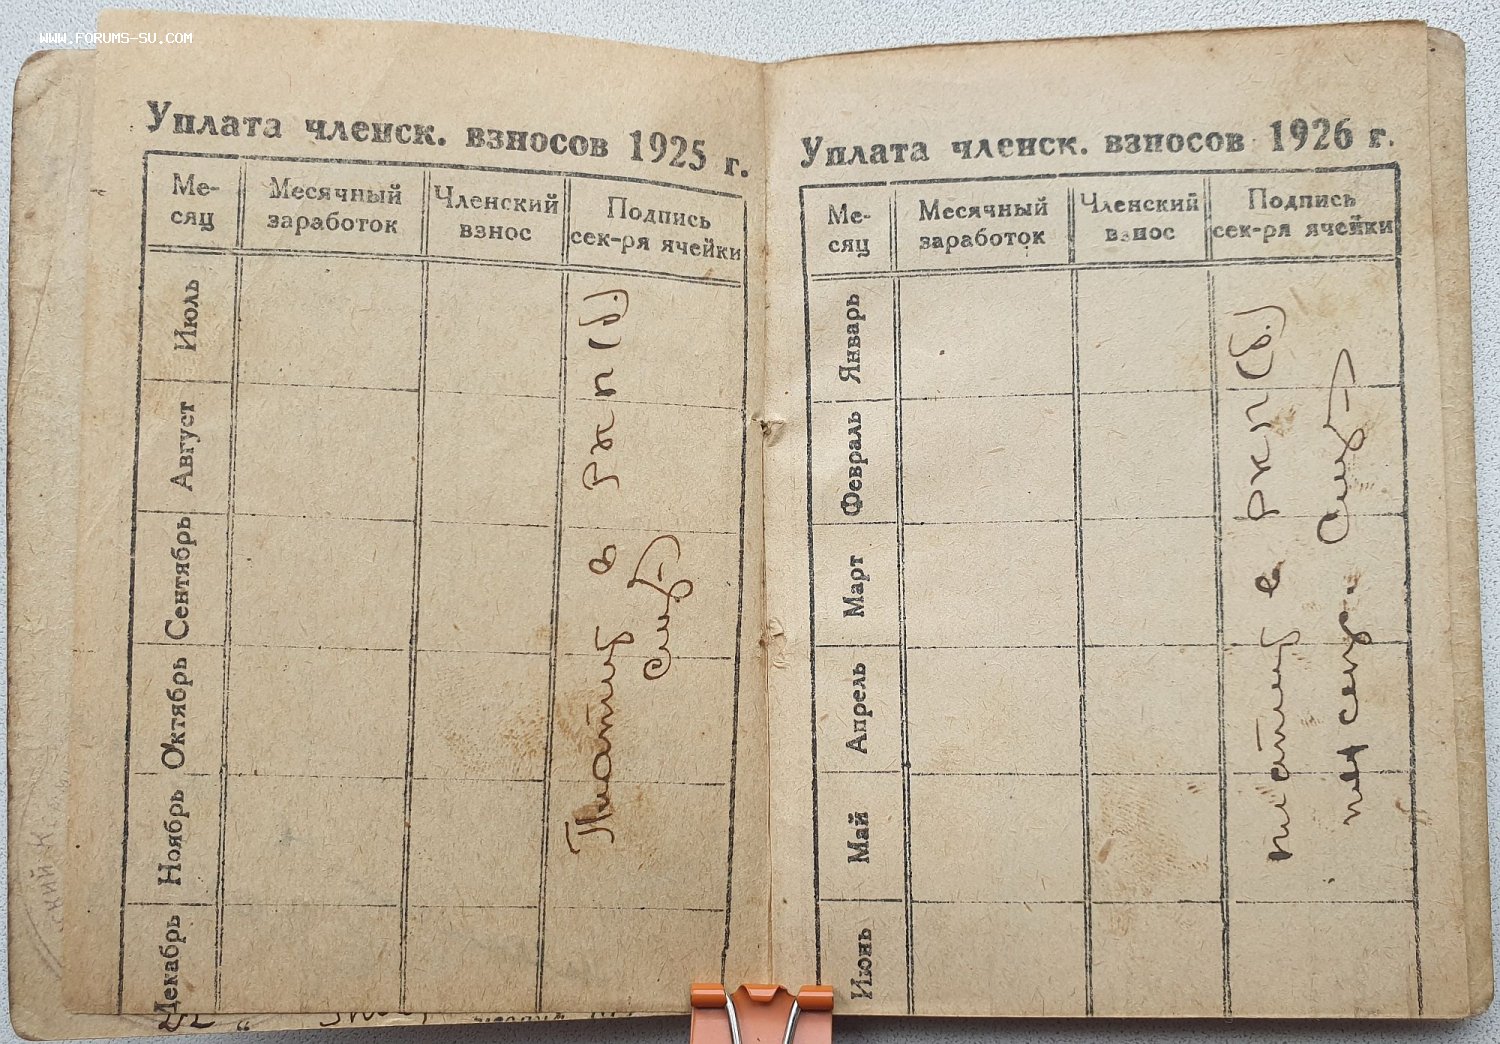 WWW.FORUMS-SU.COM
Уплата членск. взносов 1925 г.
Ме-
сяц
Месячный
заработок
Членский
взнос
Подпись
сек-ря ячейки
Июль
Август
Сентябрь
Октябрь
Ноябрь
Декабрь
Платит в РКП(б.)
Уплата членск. взносов 1926 г.
Ме-
сяц
Месячный
заработок
Членский
взнос
Подпись
сек-ря ячейки
Январь
Февраль
Март
Апрель
Май
Июнь
платит в РКП(б.)